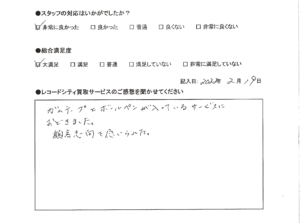 ●スタッフの対応はいかがでしたか？
☑非常に良かった □良かった □普通 □良くない □非常に良くない
●総合満足度
☑大満足 □満足 □普通 □満足していない □非常に満足していない
記入日: 2022年 2月 19日
●レコードシティ買取サービスのご感想を聞かせてください
ガムテープとボールペンが入っているサービスに
おどろきました。
顧客志向を感じられた。